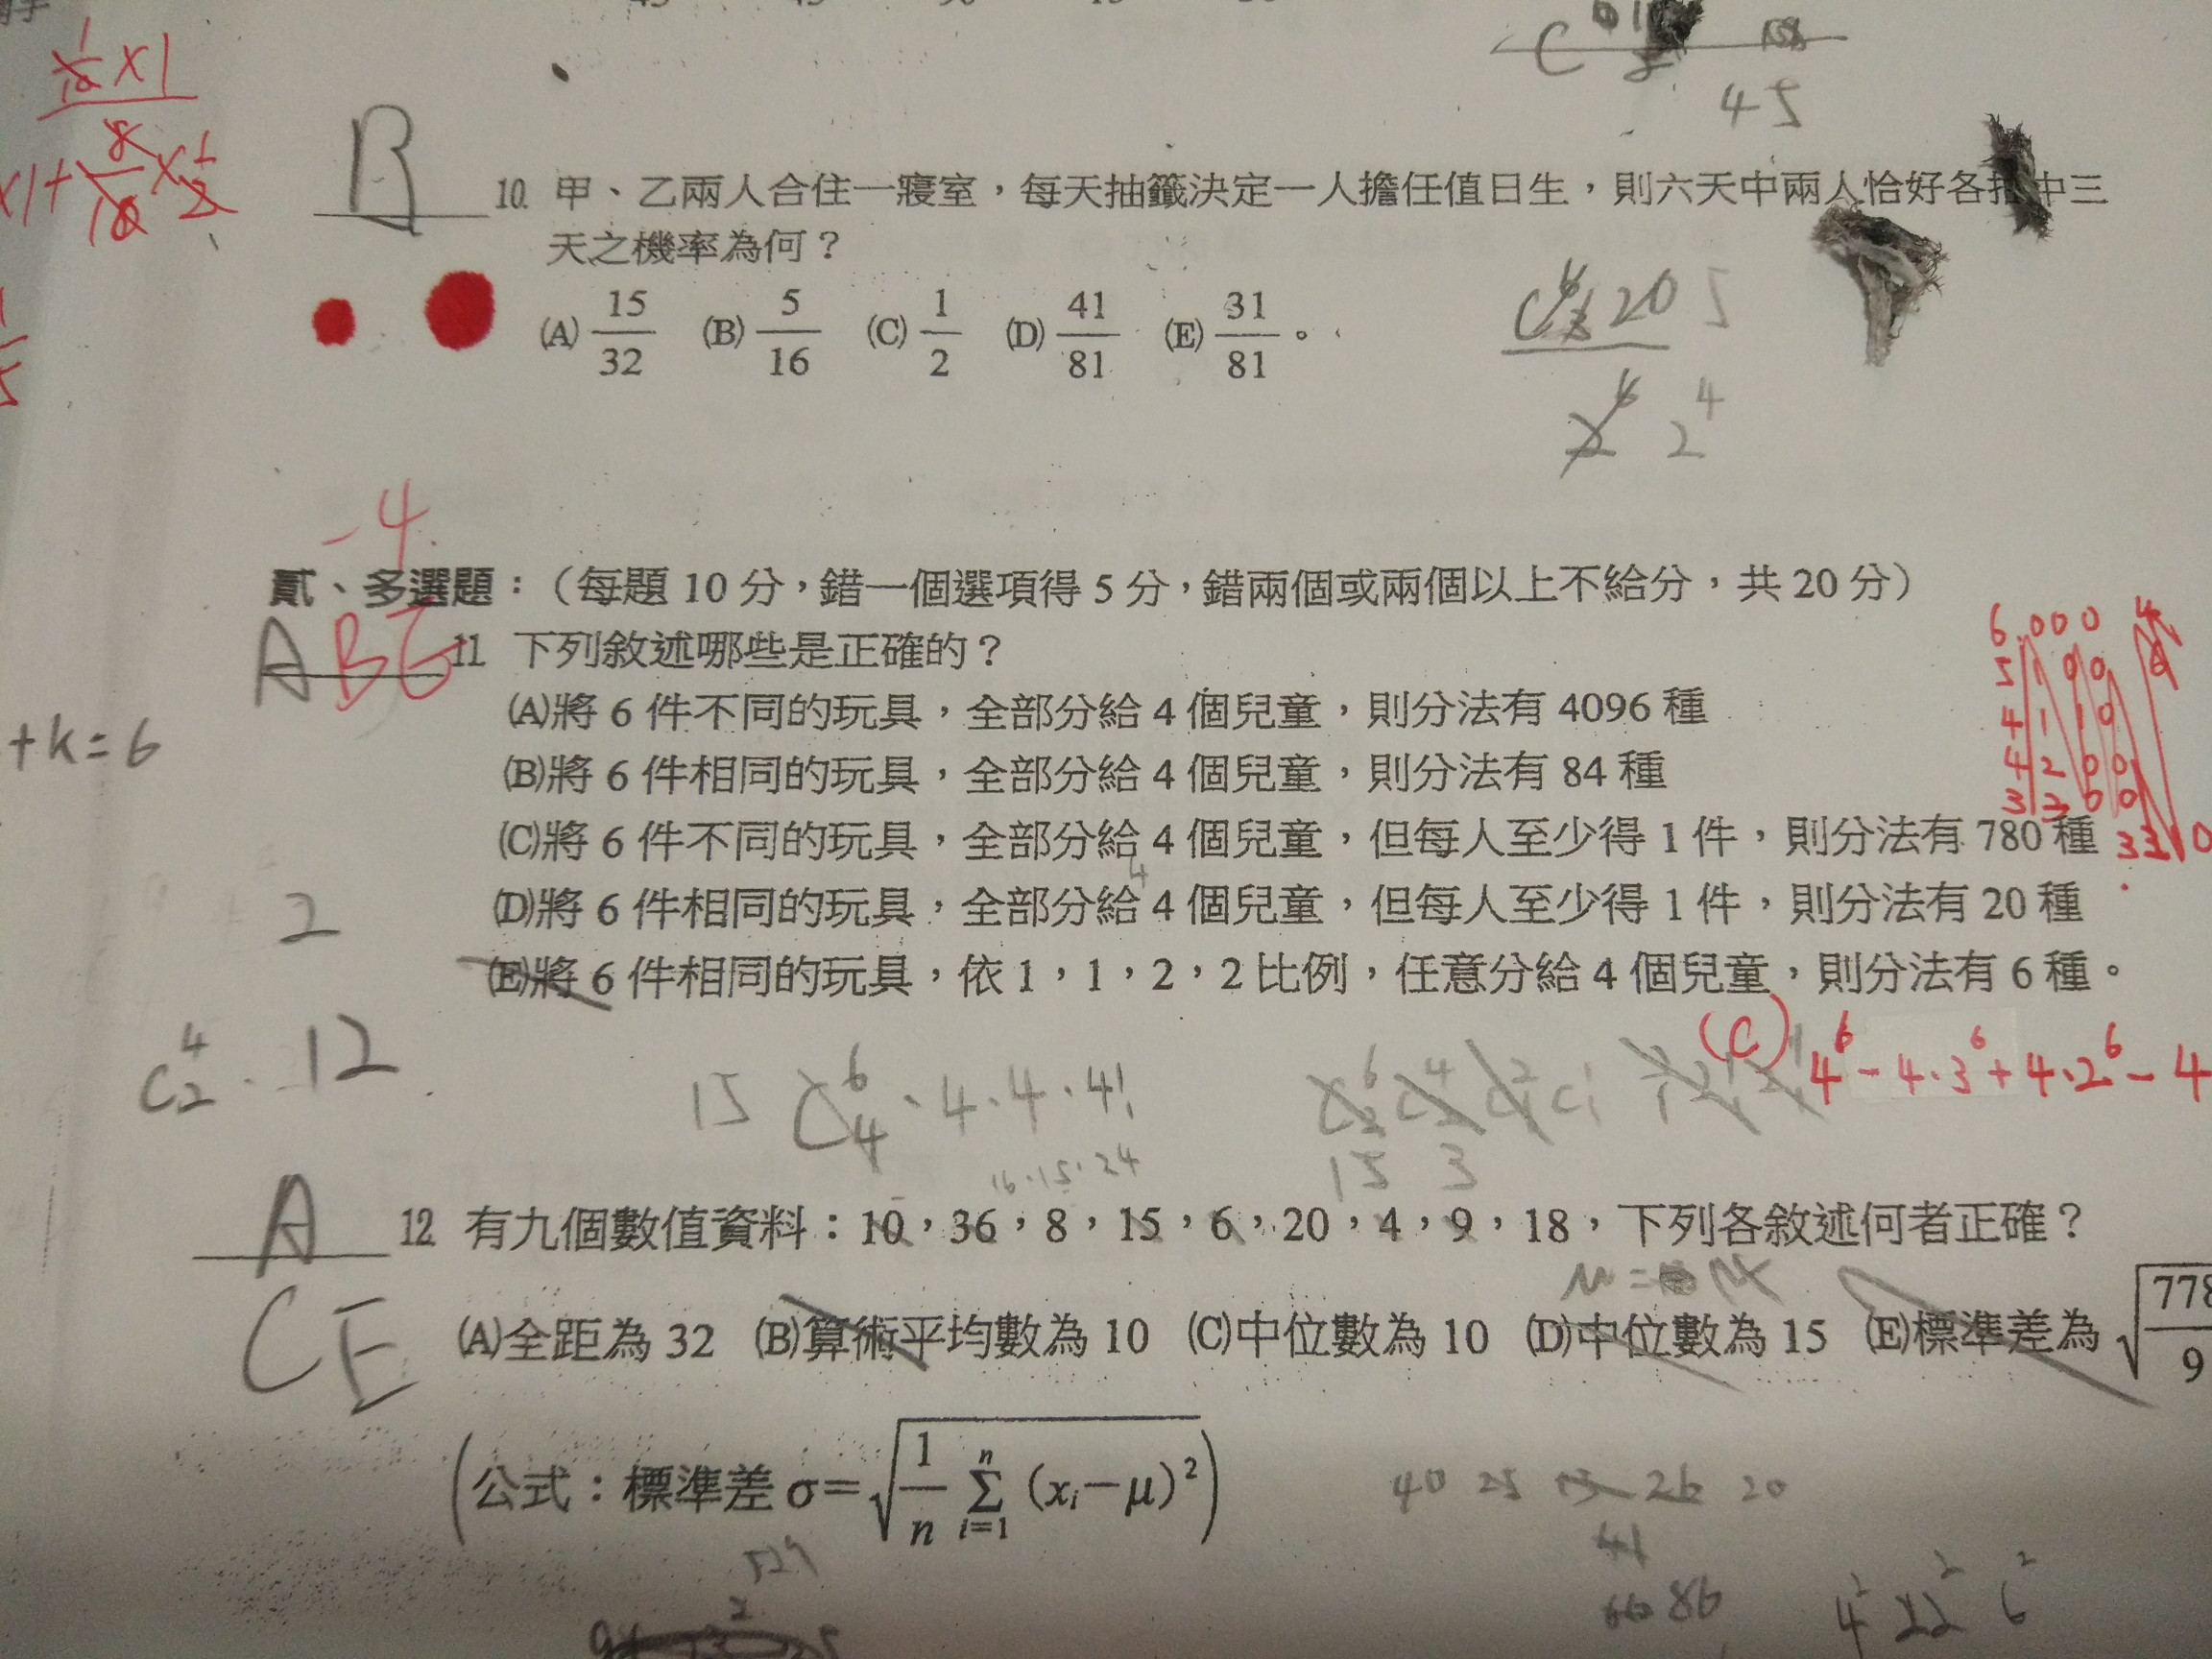 1/10 × 1
× 1 + 8/10 × 1/2
C
45
B 10. 甲、乙兩人合住一寢室，每天抽籤決定一人擔任值日生，則六天中兩人恰好各 中三
天之機率為何？
(A) 15/32 (B) 5/16 (C) 1/2 (D) 41/81 (E) 31/81 。
20 5
2^6 2^4
-4
貳、多選題：（每題 10 分，錯一個選項得 5 分，錯兩個或兩個以上不給分，共 20 分）
ABE 11. 下列敘述哪些是正確的？
(A)將 6 件不同的玩具，全部分給 4 個兒童，則分法有 4096 種
+k=6
(B)將 6 件相同的玩具，全部分給 4 個兒童，則分法有 84 種
(C)將 6 件不同的玩具，全部分給 4 個兒童，但每人至少得 1 件，則分法有 780 種
(D)將 6 件相同的玩具，全部分給 4 個兒童，但每人至少得 1 件，則分法有 20 種
2
(E)將 6 件相同的玩具，依 1，1，2，2 比例，任意分給 4 個兒童，則分法有 6 種。
6 0 0 0
5 1 0 0
4 1 1 0
4 2 0 0
(C) 4^6 - 4·3^6 + 4·2^6 - 4
C^4_2 · 12
15 C^6_4 · 4 · 4 · 4!
16·15·24
15 3
A 12. 有九個數值資料：10，36，8，15，6，20，4，9，18，下列各敘述何者正確？
CE (A)全距為 32 (B)算術平均數為 10 (C)中位數為 10 (D)中位數為 15 (E)標準差為 √778/9
(公式：標準差 σ=√(1/n Σ_{i=1}^{n} (x_i−μ)^2))
40 25 26 20
41
529
86